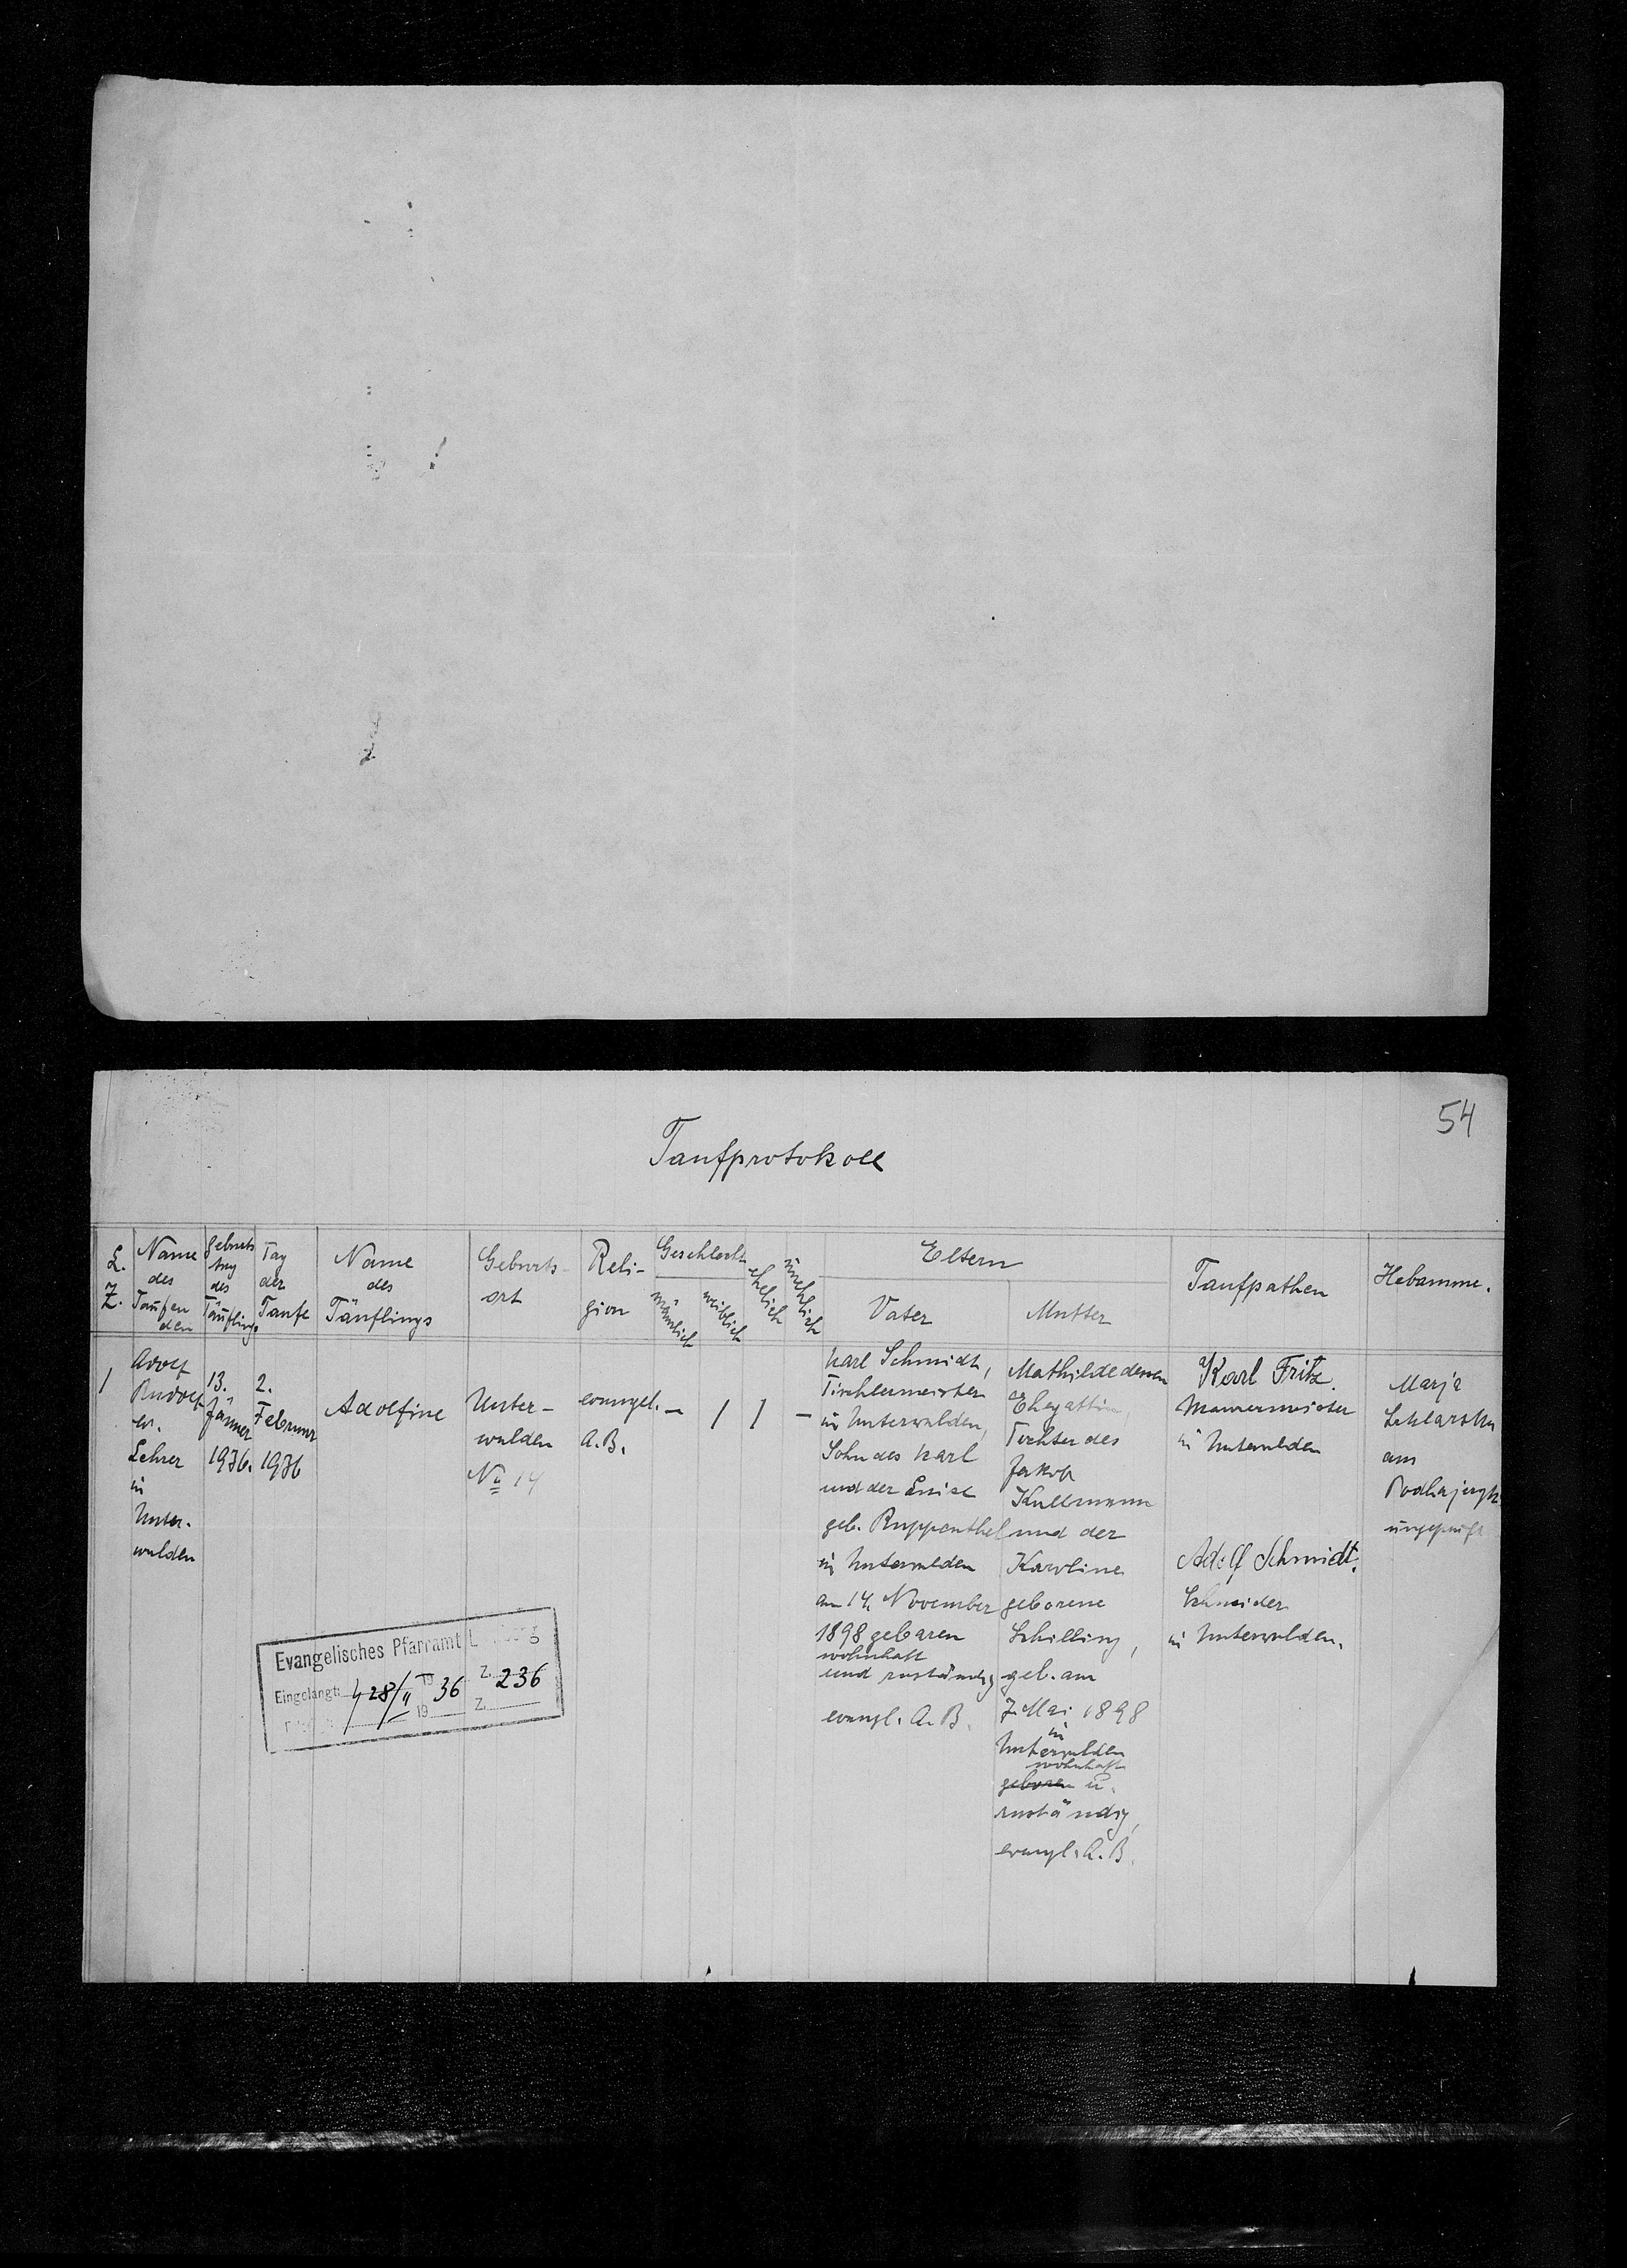 54
Taufprotokoll
L.
Z.
Name
des
Taufen
den
Geburts
tag
des
Täuflings
Tag
der
Taufe
Name
des
Täuflings
Geburts-
ort
Reli-
gion
Geschlecht
männlich
weiblich
ehelich
unehelich
Eltern
Vater
Mutter
Taufpathen
Hebamme.
1
Adolf
Rudolf
ev.
Lehrer
in
Unter-
walden
13.
Jänner
1936.
2.
Februar
1936
Adolfine
Unter-
walden
No 14
evangel.
A.B.
-
1
1
-
Karl Schmidt,
Tischlermeister
in Unterwalden,
Sohn des Karl
und der Luise
geb. Ruppenthel
in Unterwalden
am 14. November
1898 geboren
wohnhaft
und zuständig
evangl. A. B.
Mathilde dessen
Ehegattin,
Tochter des
Jakob
Kullmann
und der
Karoline
geborene
Schilling,
geb. am
7. Mai 1898
in
Unterwalden
wohnhaft
geboren u.
zuständig,
evangl. A. B.
Karl Fritz.
Maurermeister
in Unterwalden
Adolf Schmidt.
Schneider
in Unterwalden.
Marja
am
ungeprüft
Evangelisches Pfarramt
Eingelangt: 28/II 19 36 Z. 236
19 Z.